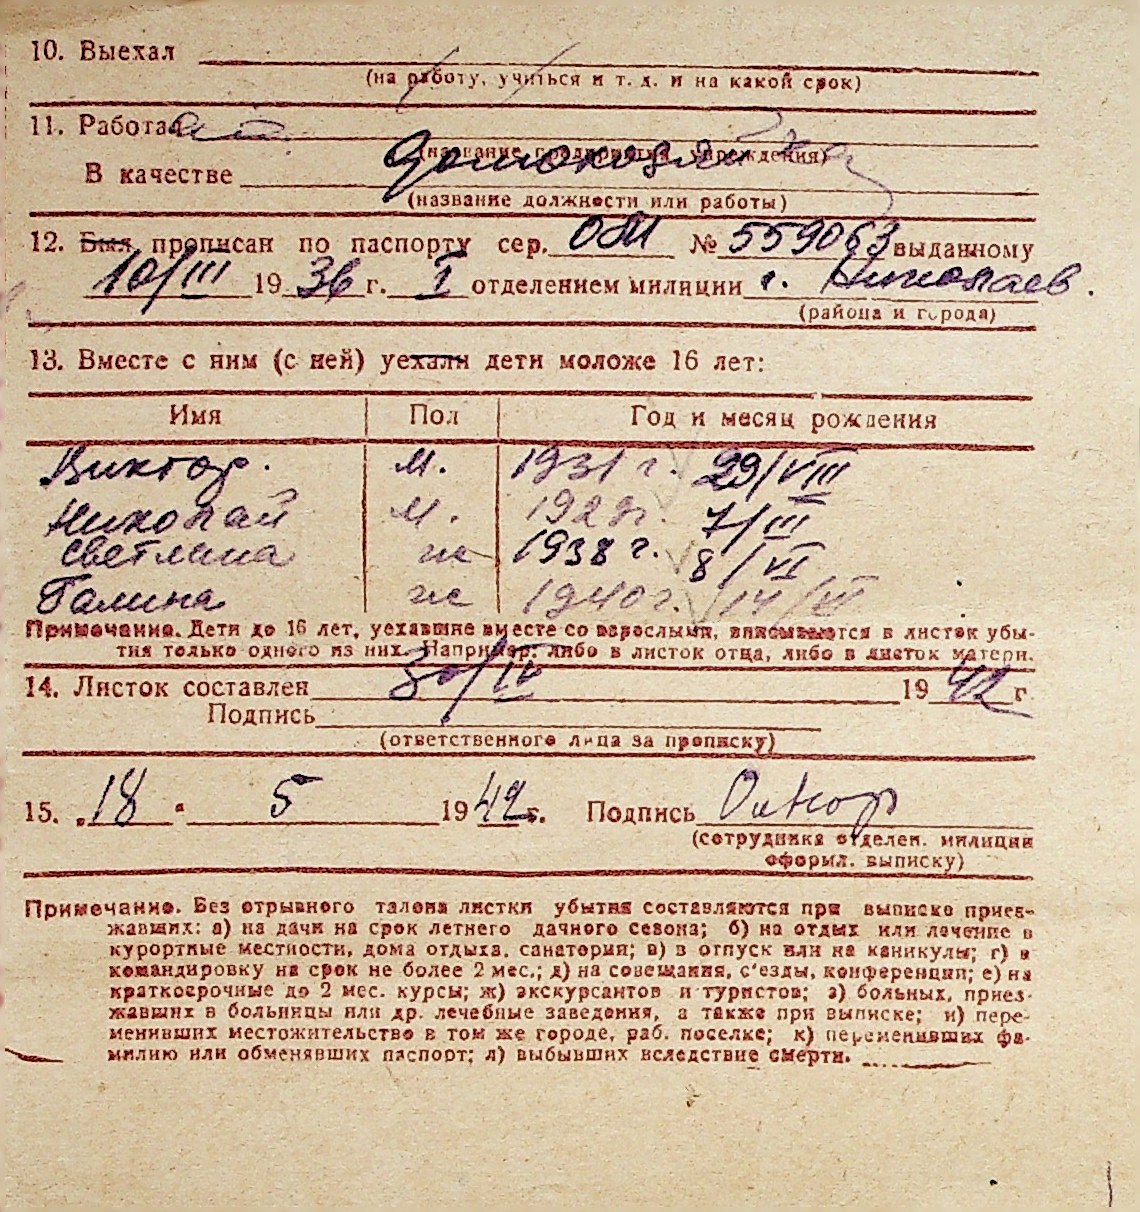 10. Выехал
(на работу, учиться и т. д. и на какой срок)
11. Работал
(название предприятия, учреждения)
домохозяйка
В качестве
(название должности или работы)
12. Был прописан по паспорту сер. ОМ № 559063 выданному
10/III 1936 г. I отделением милиции г. Николаев.
(района и города)
13. Вместе с ним (с ней) уехали дети моложе 16 лет:
Имя Пол Год и месяц рождения
Виктор. м. 1931 г. 29/VIII
Николай м. 1929 г. 7/III
Светлана ж 1938 г. 8/VI
Галина ж 1940 г. 14/VI
Примечание. Дети до 16 лет, уехавшие вместе со взрослыми, вписываются в листок убы-
тия только одного из них. Например: либо в листок отца, либо в листок матери.
14. Листок составлен 30/IV 1942 г
Подпись
(ответственного лица за прописку)
15. „18“ 5 1942 г. Подпись
(сотрудника отделен. милиции
оформл. выписку)
Примечание. Без отрывного талона листки убытия составляются при выписке приез-
жавших: а) на дачи на срок летнего дачного сезона; б) на отдых или лечение в
курортные местности, дома отдыха, санатории; в) в отпуск или на каникулы; г) в
командировку на срок не более 2 мес.; д) на совещания, с'езды, конференции; е) на
краткосрочные до 2 мес. курсы; ж) экскурсантов и туристов; з) больных, приез-
жавших в больницы или др. лечебные заведения, а также при выписке; и) пере-
менивших местожительство в том же городе, раб. поселке; к) переменивших фа-
милию или обменявших паспорт; л) выбывших вследствие смерти.